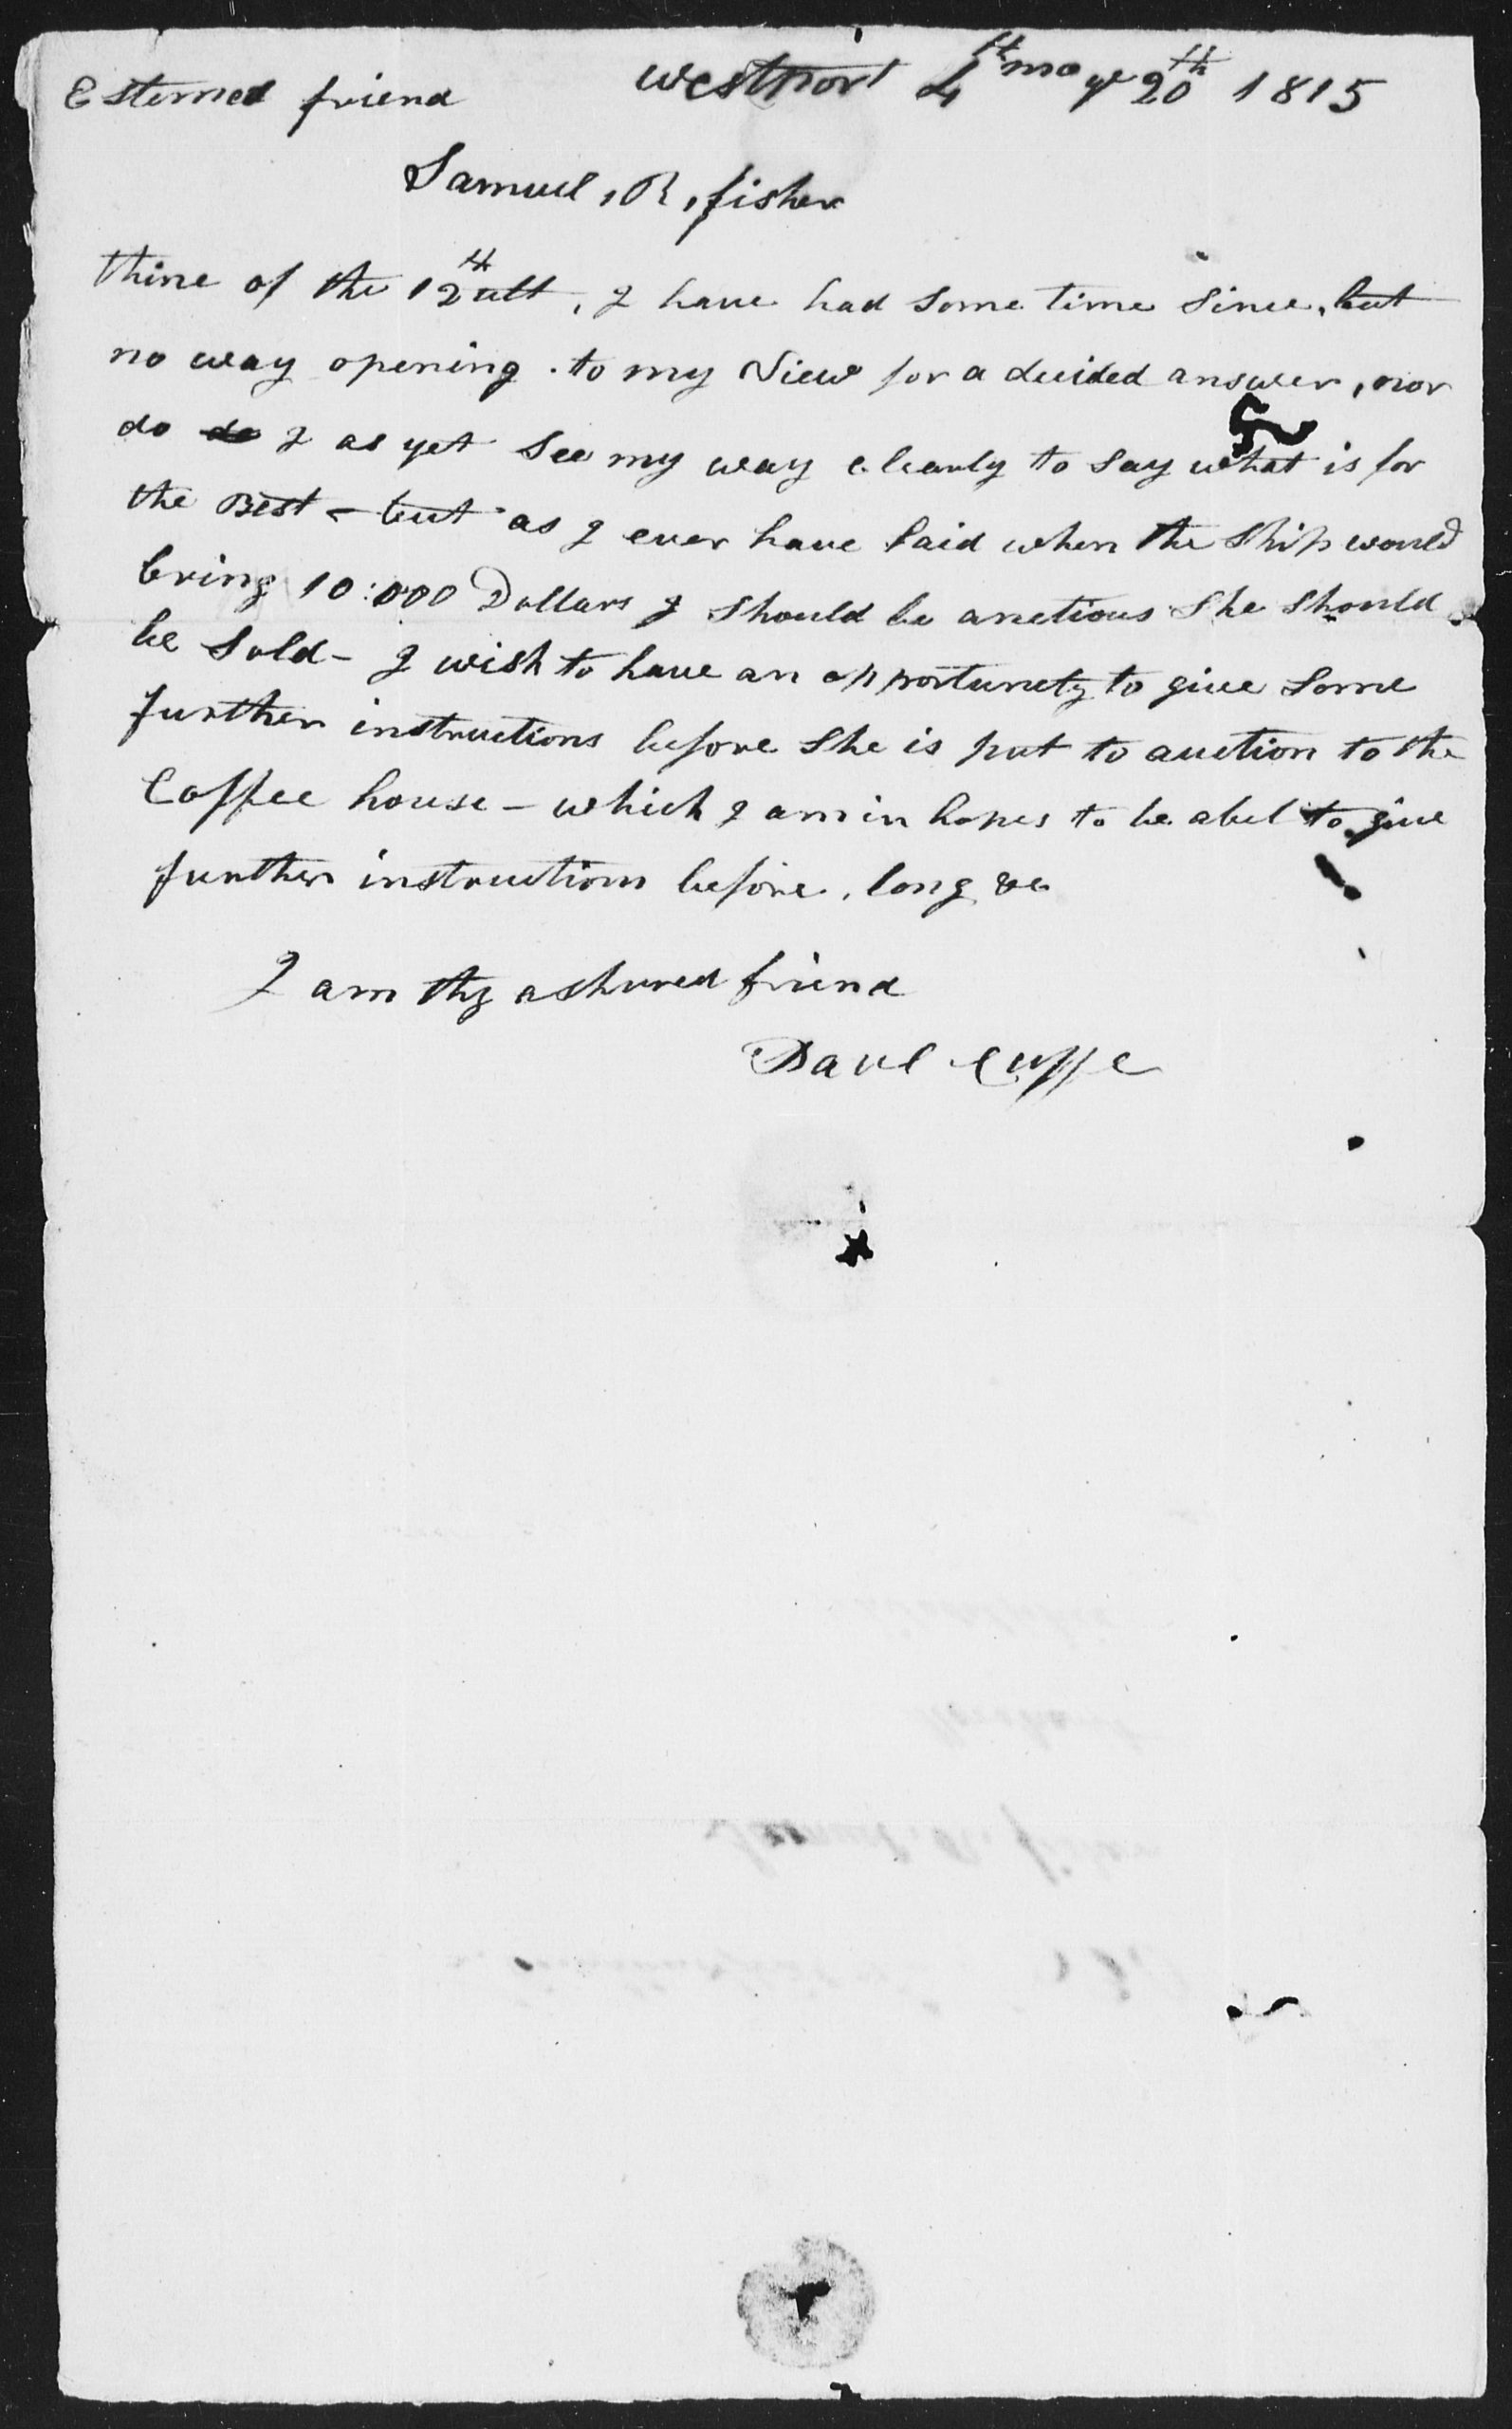 Estemed friend westport 4th mo ye 20th 1815
Samuel, R, fisher
thine of the 12th ult, I have had Some time Since, but
no way opening . to my View for a decided answer, nor
do do I as yet See my way clearly to Say what is for
the Best - but as I ever have Said when the Ship would
bring 10:000 Dollars I Should be anctious She Should
be Sold - I wish to have an opportunety to give Some
further instructions before She is put to auction to the
Coffee house - which I am in hopes to be abel to give
further instructions before, long &c
I am thy ashured friend
Paul Cuffe
Samuel. R. fisher